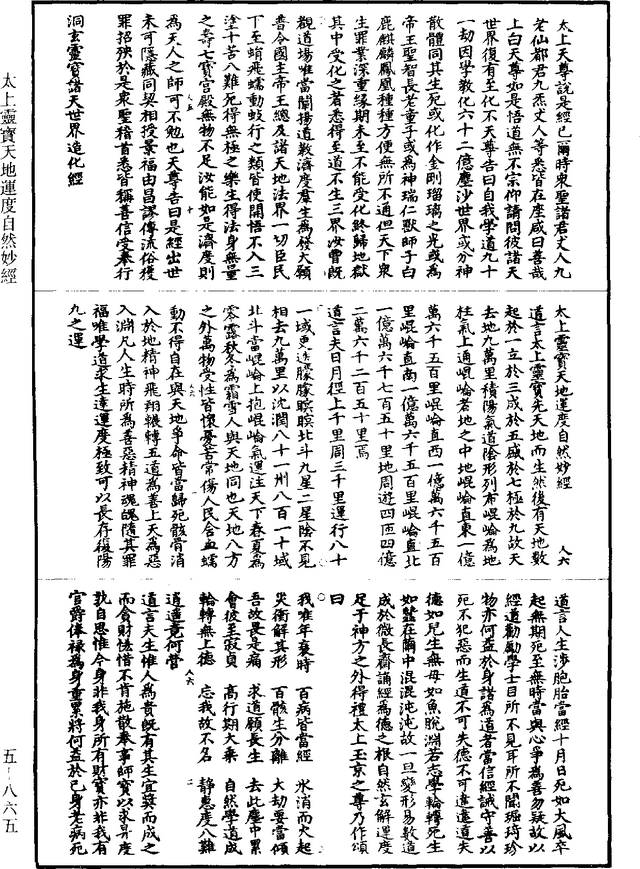 太上天尊說是經已爾時東聖諸君丈人九
老仙都君九炁丈人等悉皆在座咸曰善哉
上白天尊如是悟道無不宗仰請問彼諸天
世界復有至化不天尊告曰自我學道九十
一劫因學教化六十二億塵沙世界或分神
散體同其生死或化作金剛瑠璃之光或為
帝王聖智長老童子或為神瑞仁獸師子白
鹿麒麟鳳凰種種方便無所不通但天下眾
生罪業深重緣期未至不能受化終歸地獄
其中受化之者悉得至道不生三界汝曹既
觀道場唯當闡揚道教濟度羣生為發大願
普令國主帝王總及諸天地法界一切臣民
下至蛸飛蠕動蚑行之類皆使開悟不入三
塗十苦八難死得無極之樂生得法身無量
之壽七寶宮殿無物不足汝能如是濟度則
為天人之師可不勉也天尊告曰是經出世
未可隱藏同契相授景福由昌謬傳流俗獲
罪招殃於是眾聖稽首悉皆稱善信受奉行
洞玄靈寶諸天世界造化經
太上靈寶天地運度自然妙經
太上靈寶天地運度自然妙經 人六
道言太上靈寶先天地而生然後有天地數
起於一立於三成於五盛於七極於九故天
去地九萬里積陽氣道陰形列布崐崘為地
柱氣上通崐崘者地之中地崐崘直東一億
萬六千五百里崐崘直西一億萬六千五百
里崐崘直南一億萬六千五百里崐崘直北
一億萬六千七百五十里地周遊四匝四億
二萬六千二百五十里焉
道言夫日月徑上千里周三千里運行八十
一域更迭朦朦瞑瞑北斗九星二星陰不見
相去九萬里以沈潤八十一州八百一十域
北斗當崐崘上抱崐崘氣運注天下春夏為
零露秋冬為霜雪人與天地同也天地八方
之外萬物受性皆懷憂苦常傷人民含血蠕
動不得自在與天地爭命皆當歸死骸骨消
入於地精神飛翔輾轉五道為善上天為惡
入淵凡人生時所為善惡精神魂魄隨其罪
福唯學道求生達運度極致可以長存復陽
九之運
道言人生涉胞胎當經十月日死如大風卒
起無期死至無時當與心爭為善勿疑故以
經道勸勵學士目所不見耳所不聞瑤琦珍
物亦何益於身諸為道者當信經誡守善以
死不犯惡而生道不可失德不可違違道失
德如兒生無母如魚脫淵若志學輪轉死生
如蠶在繭中混混沌沌故一旦變形易數道
成於微長齋誦經為德之根自然玄解運度
足于神方之外得禮太上玉京之尊乃作頌
曰
我唯年衰時 百病皆當經 氷消而火起
災衝解其形 百骸生分離 大劫要當傾
吾故畏是痛 求道願長生 去此塵中累
會彼至寂貞 高行期大乘 自然學道成
輪轉無上德 忘我故不名 靜惠度八難
逍遙竟何營
道言天生惟人為貴既有其生宜冀而成之
而貪財慳惜不肯施散奉事師寶以求昇度
孰自思惟今身非我身所有財寶亦非我有
官爵俸祿為身重累將何益於己身老病死
五－八六五